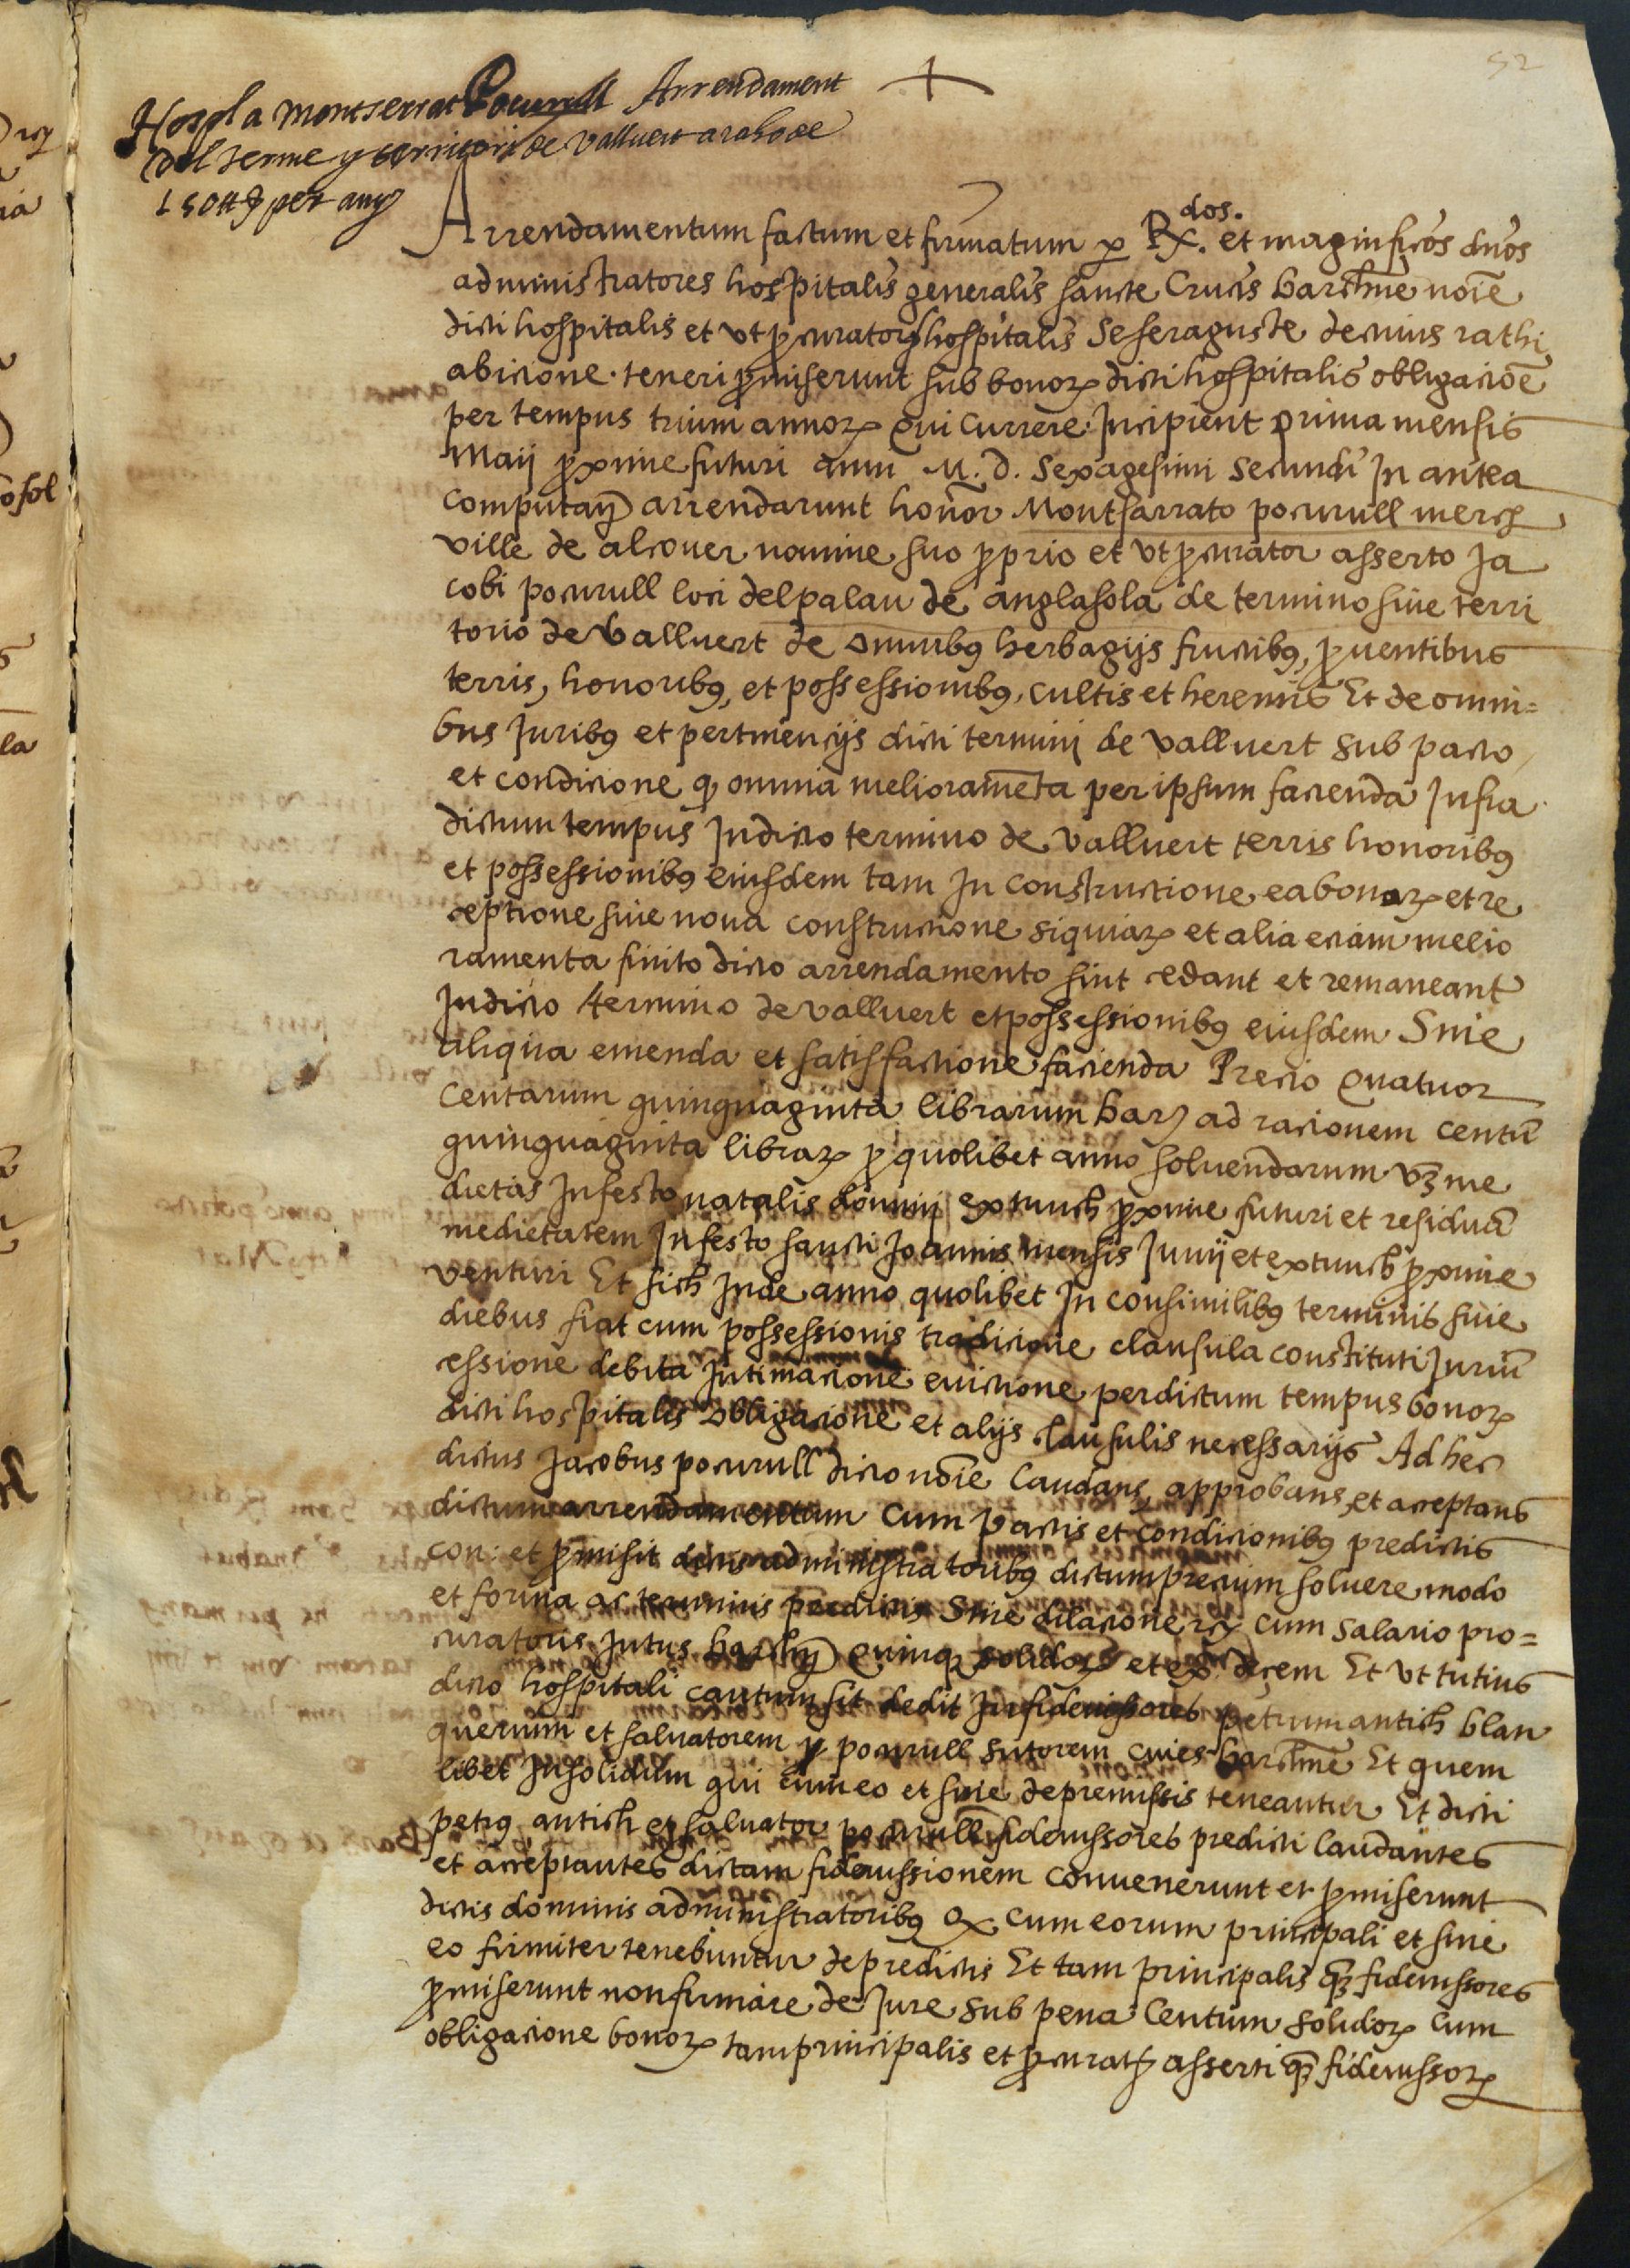 52
Hospl a montserrat Pocurull Arrendament
del terme y territori de vallvert a raho de
150 ll per any
Arrendamentum factum et firmatum per Rx.dos. et magnificos dnos
administratores hospitalis generalis sancte Crucis barchne noie
dicti hospitalis et vt procurators hospitalis Seseraguste de cuius rathi
abicione teneri promiserunt sub bonorum dicti hospitalis obligacioe
per tempus trium annorum qui Currere Incipient prima mensis
Maij proxime futuri anni M. d. Sexagesimi Secundi In antea
Computan arrendarunt honor Montsarrato pocurull merch
ville de alcouer nomine suo proprio et vt procurator asserto Ja
cobi pocurull loci del palau de anglasola de termino siue terri
torio de vallvert de omnibus herbagijs fructibus, prouentibus
terris, honoribus, et possessionibus, cultis et heremis Et de omni=
bus Juribus et pertinencijs dicti termini de vallvert sub pacto
et condicione q omnia meliorameta per ipsum facienda Infra
dictum tempus In dicto termino de vallvert terris honoribus
et possessionibus eiusdem tam In constructione eabonarum et re
ceptione siue noua constructione siquiarum et alia eciam melio
ramenta finito dicto arrendamento sint cedant et remaneant
In dicto termino de vallvert et possessionibus eiusdem Sine
aliqua emenda et satisfactione facienda Precio quatuor
Centarum quinquaginta librarum bar ad racionem centu
quinquaginta librarum pro quolibet anno soluendarum vz me
dietas In festo natalis domini extunch proxime futuri et residua
medietatem In festo sancti Joannis mensis Junij et extunch proxime
venturi Et sich Inde anno quolibet In consimilibus terminis siue
diebus fiat cum possessionis tradicione clausula constituti Juriu
cessione debita Intimacione euictione per dictum tempus bonorum
dicti hospitalis obligacione et alijs clausulis necessarijs Ad hec
dictus Jacobus pocurull dicto noie laudans, approbans, et acceptans
dictum arrendamentum Cum pactis et condicionibus predictis
con: et promisit dictis administratoribus dictum precium soluere modo
et forma ac terminis predictis Sine dilacione rcs cum salario pro=
curatoris Intus barchn quinque solidorum et ex decem Et vt tutius
dicto hospitali cautum sit dedit In fideiussores petrum antich blan
querium et saluatorem pocurull sutorem ciues barchne Et quem
libet Insolidum qui cum eo et sine de premissis teneantur Et dicti
petrus antich et saluator pocurull fideiussores predicti laudantes
et acceptantes dictam fideiussionem convenerunt et promiserunt
dictis dominis administratoribus qx cum eorum principali et sine
eo firmiter tenebuntur de predictis Et tam principalis qz fideiussores
promiserunt non firmare de Jure sub pena Centum solidorum Cum
obligacione bonorum tam principalis et procurat asserti qz fideiussorum